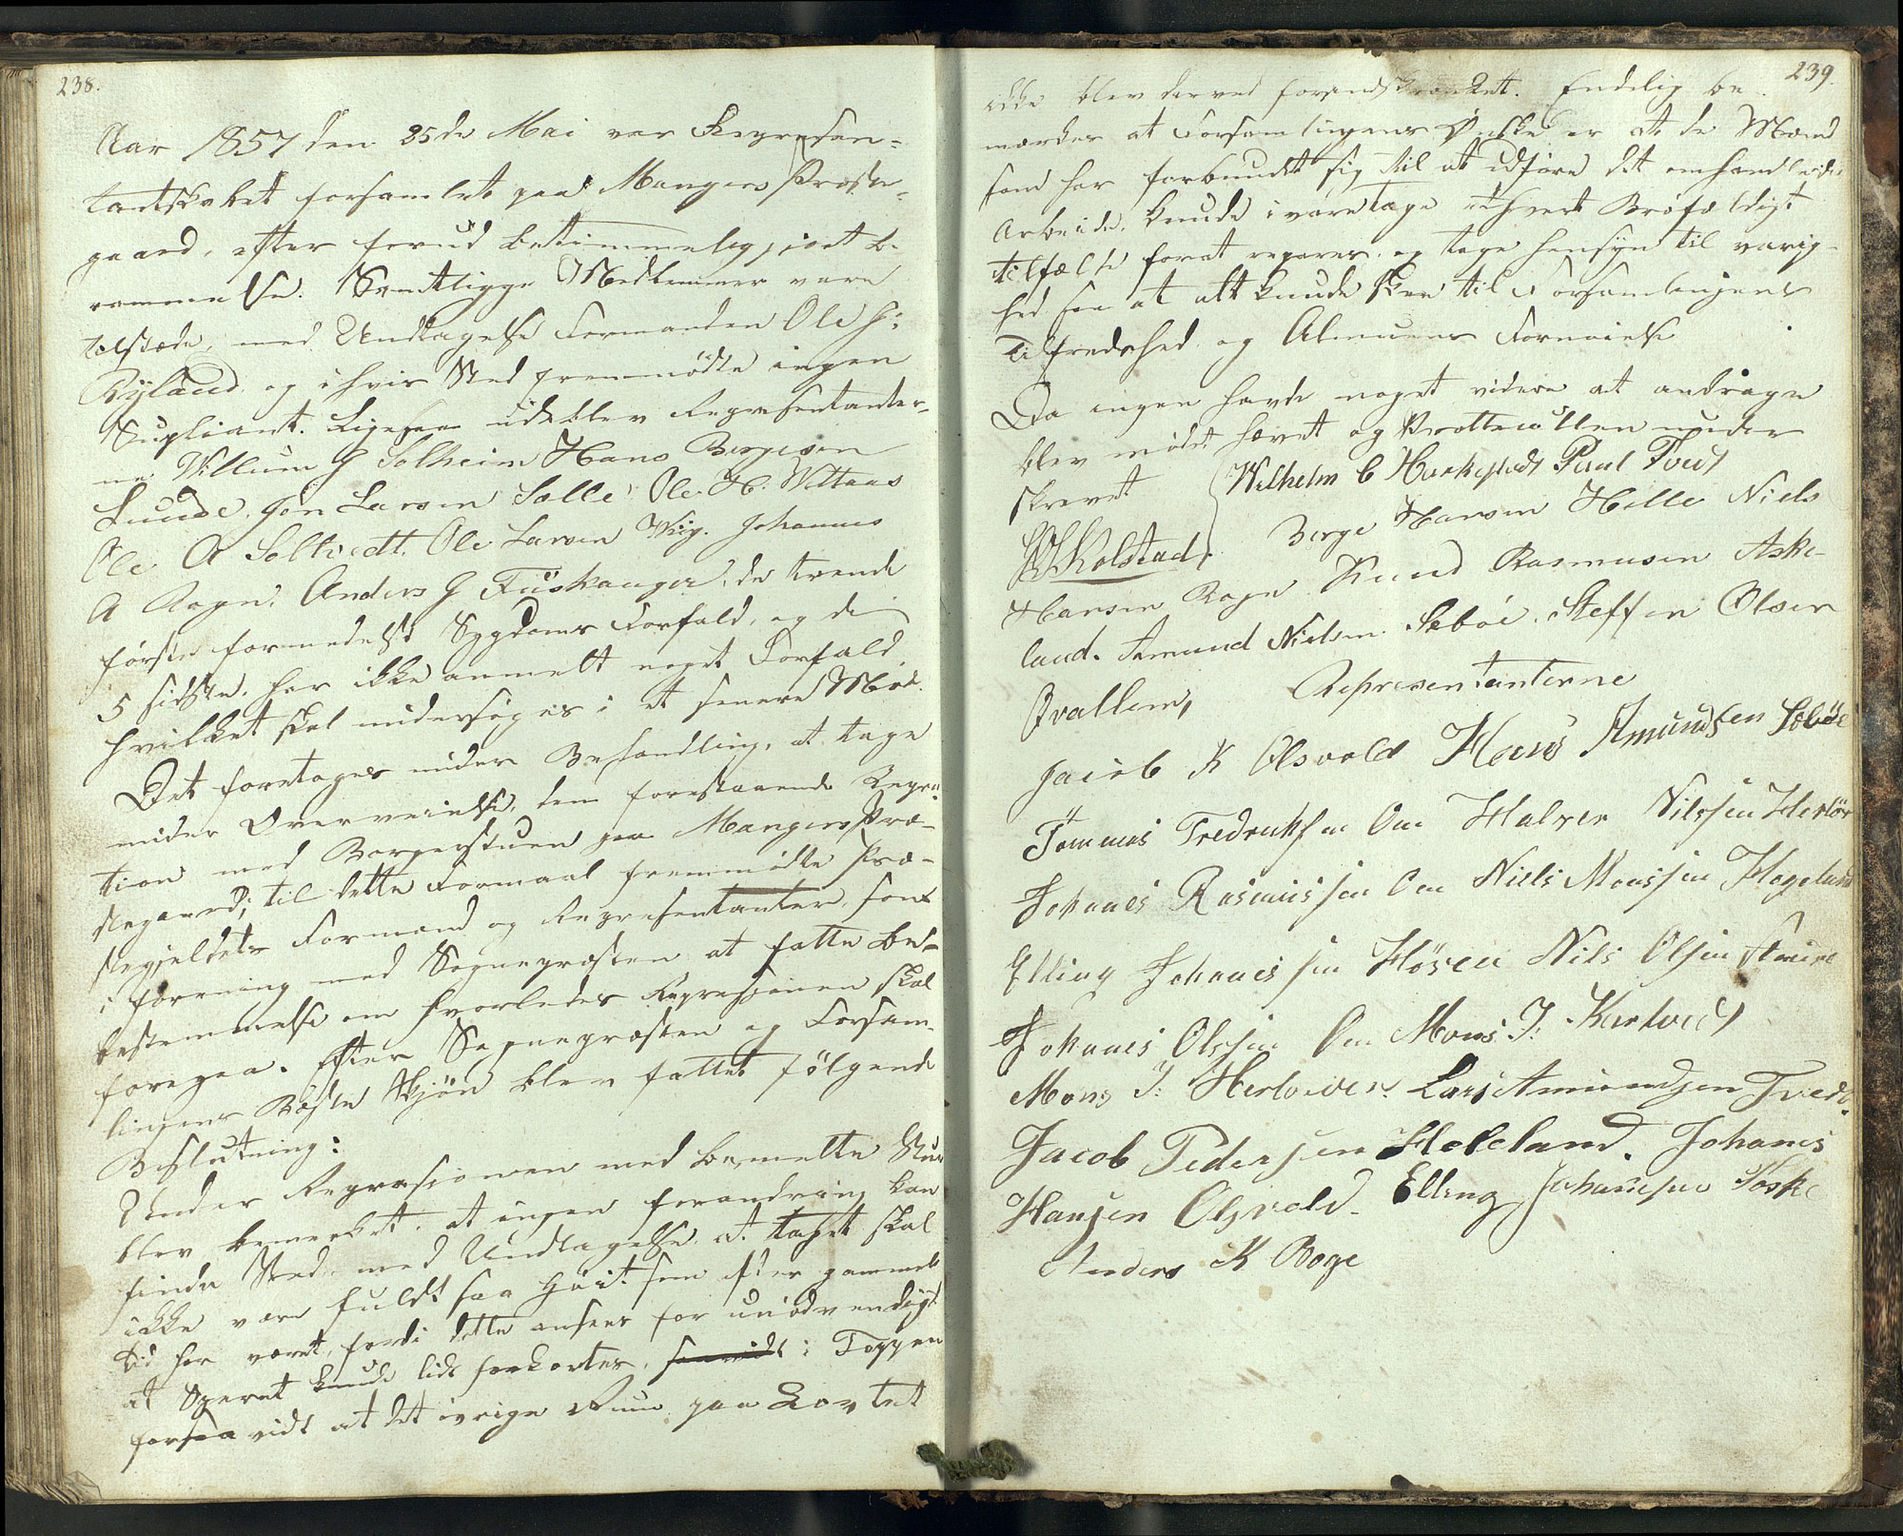 238.
Aar 1857 den 25de Mai var Repræsen-
tantskabet forsamlet paa Mangers Præste-
gaard, efter forud betimmelig, iret be-
rammelse. Samtligge Medlemmer vare
tilstæde, med Undtagelse Formanden Ole H:
Ryland og i hvis Sted fremmödte ingen
Supliant. Ligesaa udeblev Repræsentanter-
ne Villum G Solheim Hans Børgesen
Lunde, Jon Larsen Sælle, Ole H: Vettaas
Ole A Soltvedt, Ole Larsen Wiig. Johannes
A Bogn, Anders G Fuskanger, de trende
første formedelst Sygdoms Forfald, og de
5 sidste, har ikke anmelt noget Forfald
hvilket skal undersøges i et senere Möde.
Det foretoges under Behandling, at tage
under Overveielse, den forestaaende Repra-
tion med Borgerstuen paa Mangers Præ-
stegaard; til dette Formaal fremmödte Præ-
stegjeldets Formænd og Repræsentanter, som
i forening med Sognepræsten at fatte Be-
bestemmelse om hvorledes Reprasjonen skal
foregaa. Efter Sognepræsten og Forsam-
lingens Bedste Skjön blev fattet fölgende
Beslutning:
Under Reprasjonen med bemelte Stue
blev bemerket, at ingen forandring kan
finde Sted, med Undtagelse, at taget skal
ikke være fuldt saa höit som efter gammel
tid har været, fordi dette ansees for unödvendigt
at Sperret kunde lidt forkortes, i Toppen
forsaavidt at det övrige Rum paa Lovtet
239.
ikke blev derved forandskrenket. Endelig be-
mærkes at Forsamlingens Önske er at de Mænd
som har forbundet sig til at udføre det omhandlede
Arbeide, kunde ivaretage ethvert Bröfældigt
tilfælde forat repares, og tage hensyn til varig-
hed saa at alt kunde skee til Forsamlingens
Tilfredshed og Almuens Fornöielse
Da ingen havde noget videre at andrage
blev mödet hævet og Prottecollen under
skrevet Wilhelm C Harkestadt Paul Tvedt
Kolstad, Børge Hansen Helle Niels
Hansen Boge Knud Rasmusen Aske-
land. Amund Nielsen Seböe. Steffen Olsen
Qvallem, Representanterne
Jacob K Olsvold Hans Amundsen Seböe
Tommas Fredriksen Om Halver Nilssen Herlör
Johanes Rasmussen Om Niels Monssen Hogelund
Elling Johanessen Höven Nils Olsen
Johanes Olssen Om Mons J: Kartvedt
Mons J: Hertvier. Lars Amundsen Tvedt.
Jacob Pedersen Heleland. Johanes
Hansen Olsvold. Elling Johanesen Toske
Anders K Boge